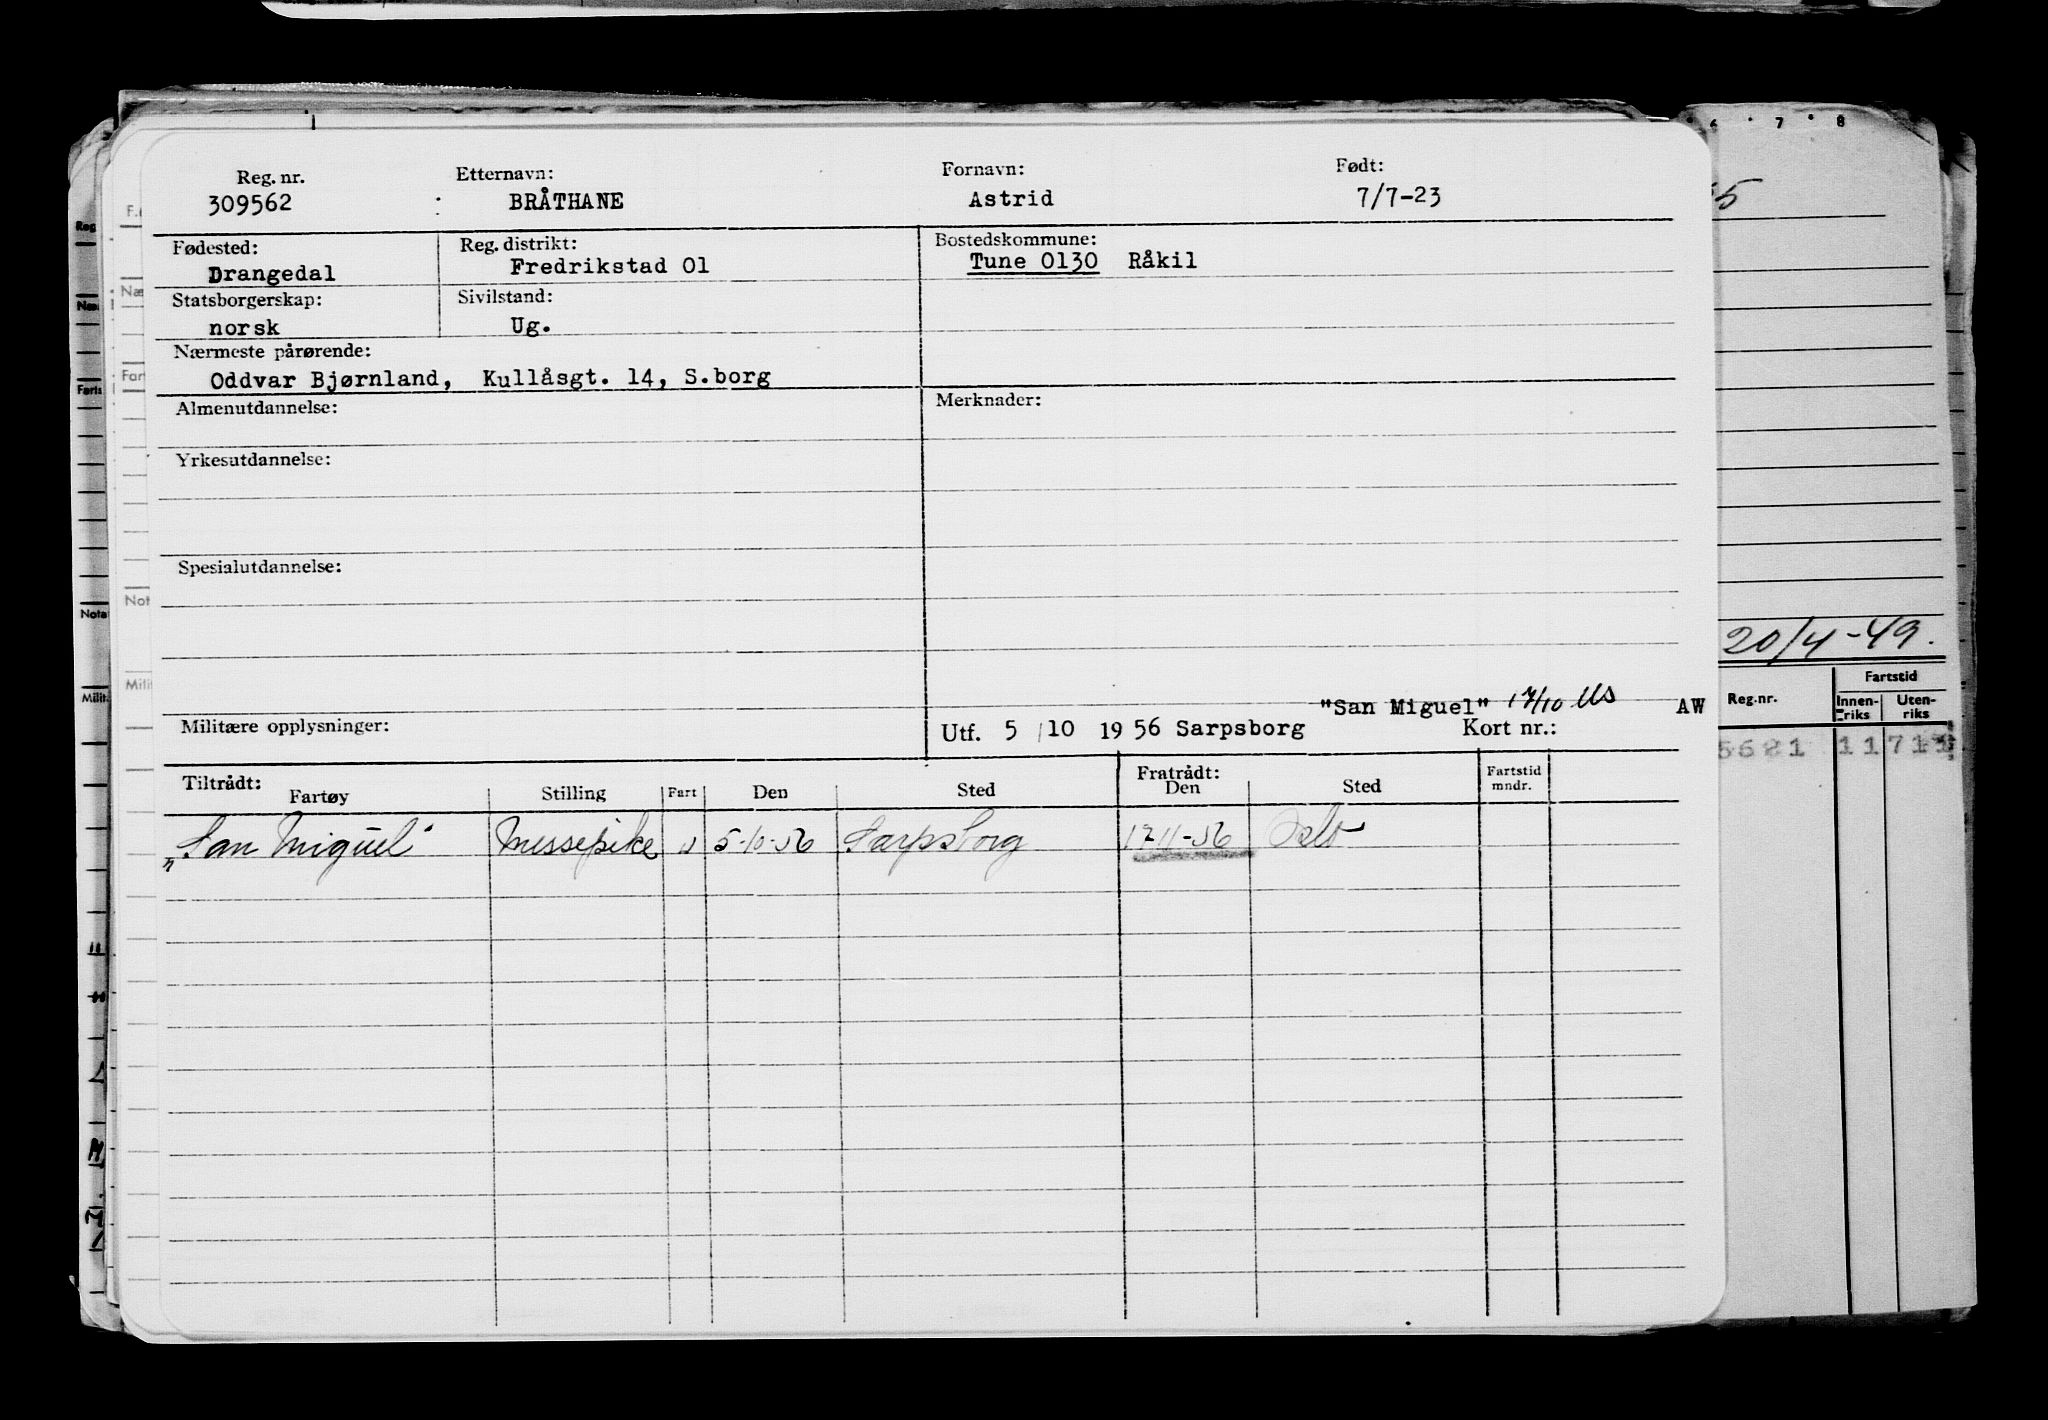 Reg. nr. Etternavn: Fornavn: Født:
309562 : BRÅTHANE Astrid 7/7-23
Fødested: Reg. distrikt: Bostedskommune:
Drangedal Fredrikstad 01 Tune 0130 Råkil
Statsborgerskap: Sivilstand:
norsk Ug.
Nærmeste pårørende:
Oddvar Bjørnland, Kullåsgt. 14, S.borg
Almenutdannelse: Merknader:
Yrkesutdannelse:
Spesialutdannelse:
"San Miguel" 17/10 AW
Militære opplysninger: Utf. 5 /10 19 56 Sarpsborg Kort nr.:
Tiltrådt: Fratrådt:
Fartøy Stilling Fart Den Sted Den Sted Fartstid mndr.
"San Miguel" Messepike U 5-10-56 Sarpsborg 17 11-56 Oslo
6 7 8
20/4-49.
Reg.nr. Fartstid
Innenriks Utenriks
5621 11